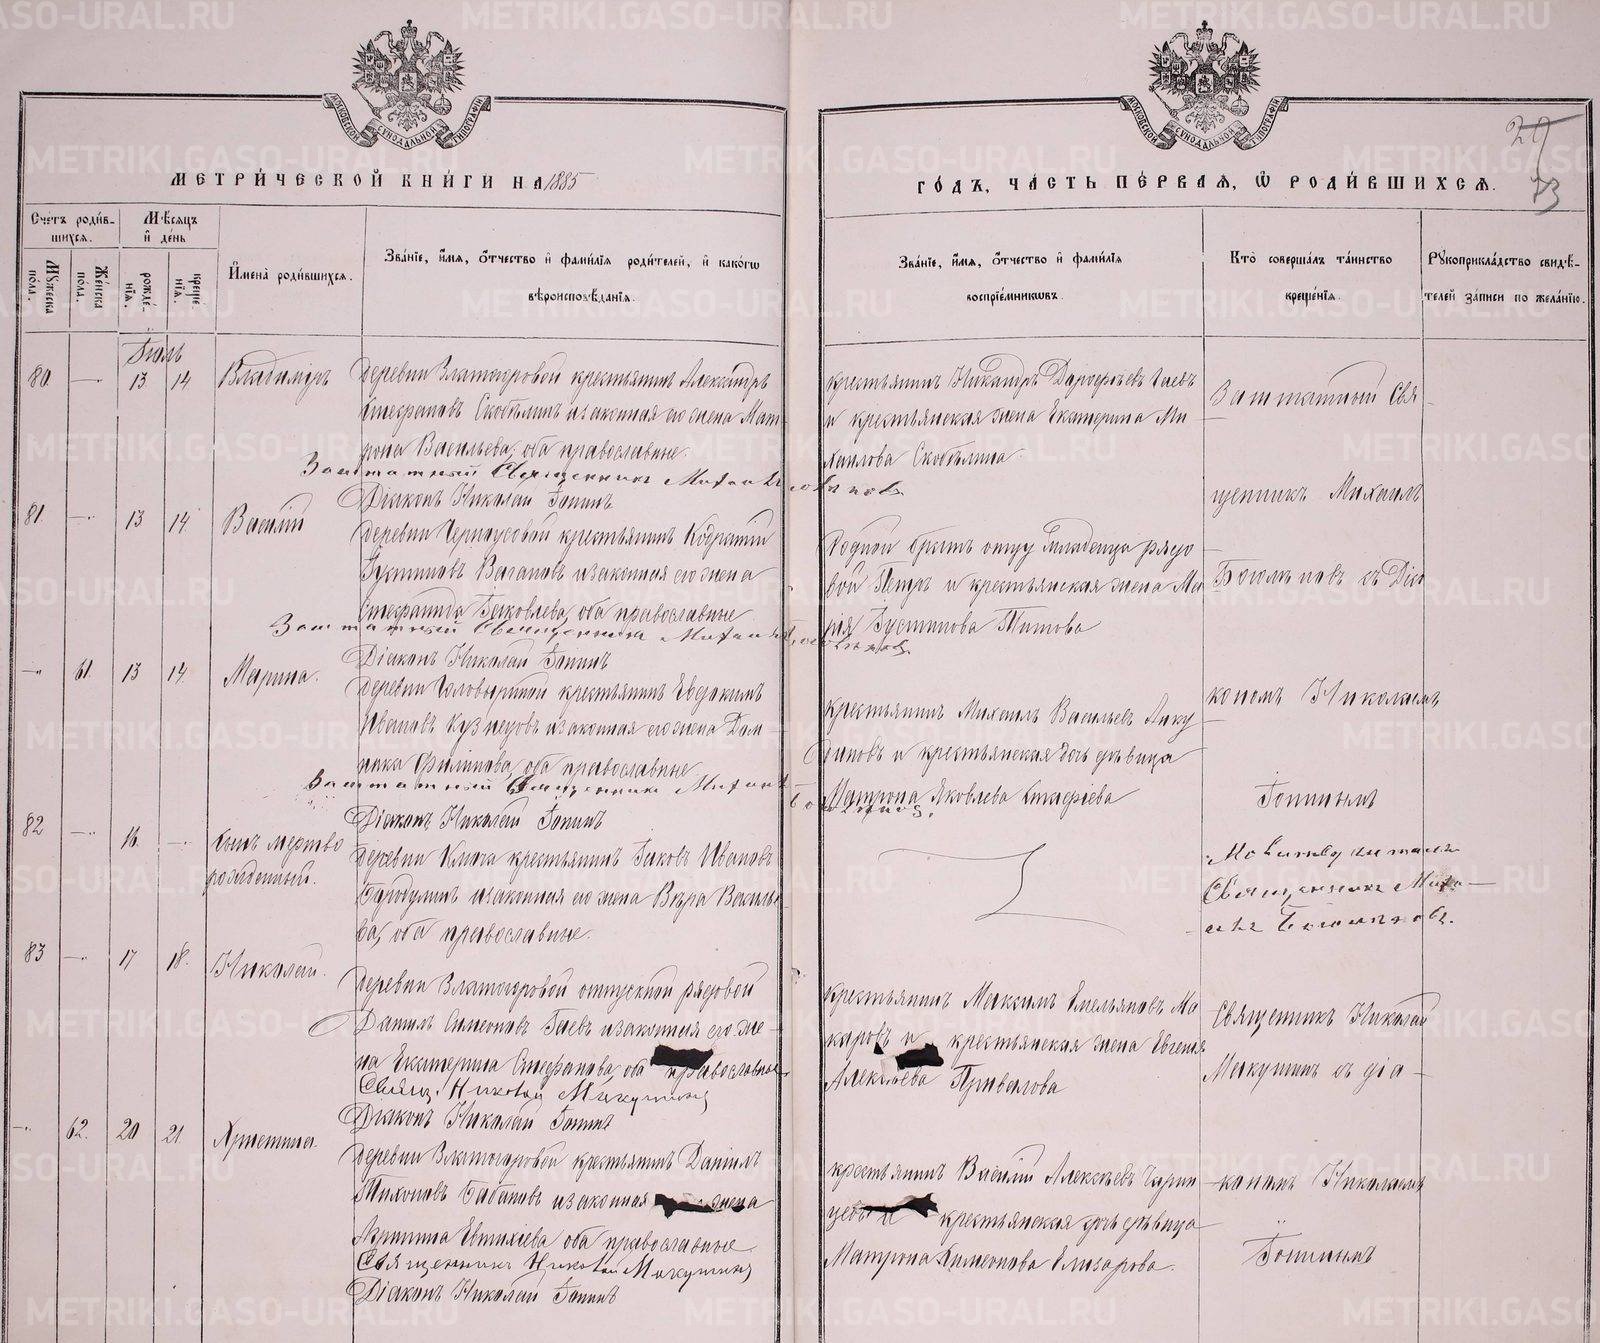 МОСКОВСКОЙ СУНОДАЛЬНОЙ ТИПОГРАФІИ
МОСКОВСКОЙ СУНОДАЛЬНОЙ ТИПОГРАФІИ
29
73
МЕТРИ́ЧЕСКОЙ КНИ́ГИ НА 1885
ГО́ДЪ, ЧА́СТЬ ПЕ́РВАЯ, Ѽ РОДИ́ВШИХСЯ.
Сче́тъ роди́вшихся.
Му́жеска пола.
Же́нска по́ла.
Мѣ́сяцъ и́ де́нь
рожде́нїя.
креще́нїя.
И҆мена̀ роди́вшихся.
Зва́нїе, и҆́мя, ѻ҆́тчество и҆ фами́лїя роди́телей, и҆ како́гѡ вѣроисповѣ́данїя.
Зва́нїе, и҆́мя, ѻ҆́тчество и҆ фами́лїя воспрїе́мникѡвъ.
Кто̀ соверша́лъ та́инство креще́нїя.
Рꙋкоприкла́дство свидѣ́телей за́писи по жела́нїю.
Іюль
80 — 13 14 Владимиръ
деревни Златогоровой крестьянинъ Александръ
Стефановъ Скобѣлинъ и законная его жена Мат
рона Васильева, оба православные.
Заштатный Священникъ Михаилъ
Діаконъ Николай Іонинъ
крестьянинъ Никандръ Дорофѣевъ Гаевъ
и крестьянская жена Екатерина Ми
хаилова Скобѣлина.
Заштатный Свя
щенникъ Михаилъ
81. — 13 14 Василій
деревни Черноусовой крестьянинъ Кодратій
Іустиновъ Вагановъ и законная его жена
Стефанида Іаковлева, оба православные
Заштатный Священникъ Михаилъ
Діаконъ Николай Іонинъ
Родной братъ отцу младенца рядо
вой Петръ и крестьянская жена Ма
рія Іустинова Титова
съ Діа
— 61. 13 14. Марина.
крестьянинъ Евдокимъ
Ивановъ Кузнецовъ и законная его жена Дом
ника Филипова, оба православные
Заштатный Священникъ Михаилъ
Діаконъ Николай Іонинъ
крестьянинъ Михаилъ Васильевъ
и крестьянская дочь дѣвица
Матрона Яковлева
кономъ Николаемъ
Іонинымъ
82 — 16. — Сынъ мертво
рожденный.
деревни Ключа крестьянинъ Іаковъ Ивановъ
Бородулинъ и законная его жена Вѣра Василье
ва, оба православные.
Молитву читалъ
Священникъ Миха
83 — 17 18. Николай.
деревни Златогоровой отпускной рядовой
Данилъ Симеоновъ Гаевъ и законная его же
на Екатерина Стефанова, оба православные
Свящ. Николай Макушинъ
Діаконъ Николай Іонинъ
крестьянинъ Максимъ Емельяновъ Ма
каровъ и крестьянская жена Евгенія
Алексѣева Привалова
Священникъ Николай
Макушинъ съ діа
— 62. 20 21. Христина.
деревни Златогоровой крестьянинъ Даніилъ
Тихоновъ Бабановъ и законная жена
Евтихіева оба православные.
Священникъ Николай Макушинъ
Діаконъ Николай Іонинъ
крестьянинъ Василій Алексѣевъ
крестьянская дочь дѣвица
Матрона Симеонова Елизарова.
кономъ Николаемъ
Іонинымъ
METRIKI.GASO-URAL.RU